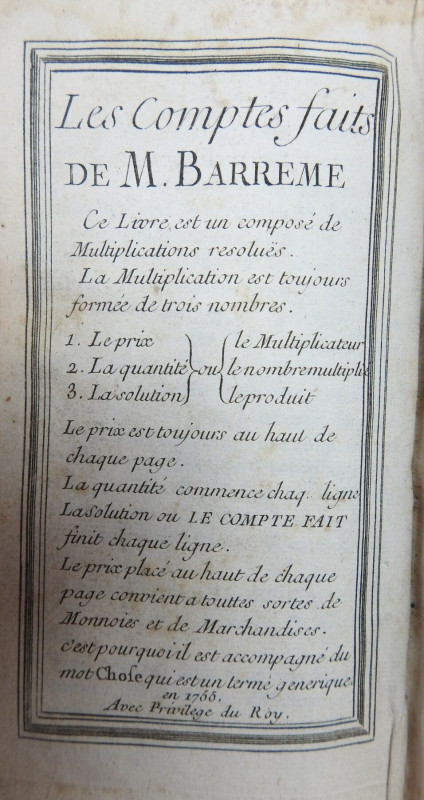 Les Comptes faits
DE M. BARREME
Ce Livre est un composé de
Multiplications resoluës.
La Multiplication est toujours
formée de trois nombres.
1. Le prix le Multiplicateur
2. La quantité ou le nombre multiplié
3. La solution le produit
Le prix est toujours au haut de
chaque page.
La quantité commence chaq. ligne
La solution ou LE COMPTE FAIT
finit chaque ligne.
Le prix placé au haut de chaque
page convient a touttes sortes de
Monnoies et de Marchandises.
c'est pourquoi il est accompagné du
mot Chose qui est un termé generique.
en 1755.
Avec Privilege du Roy.